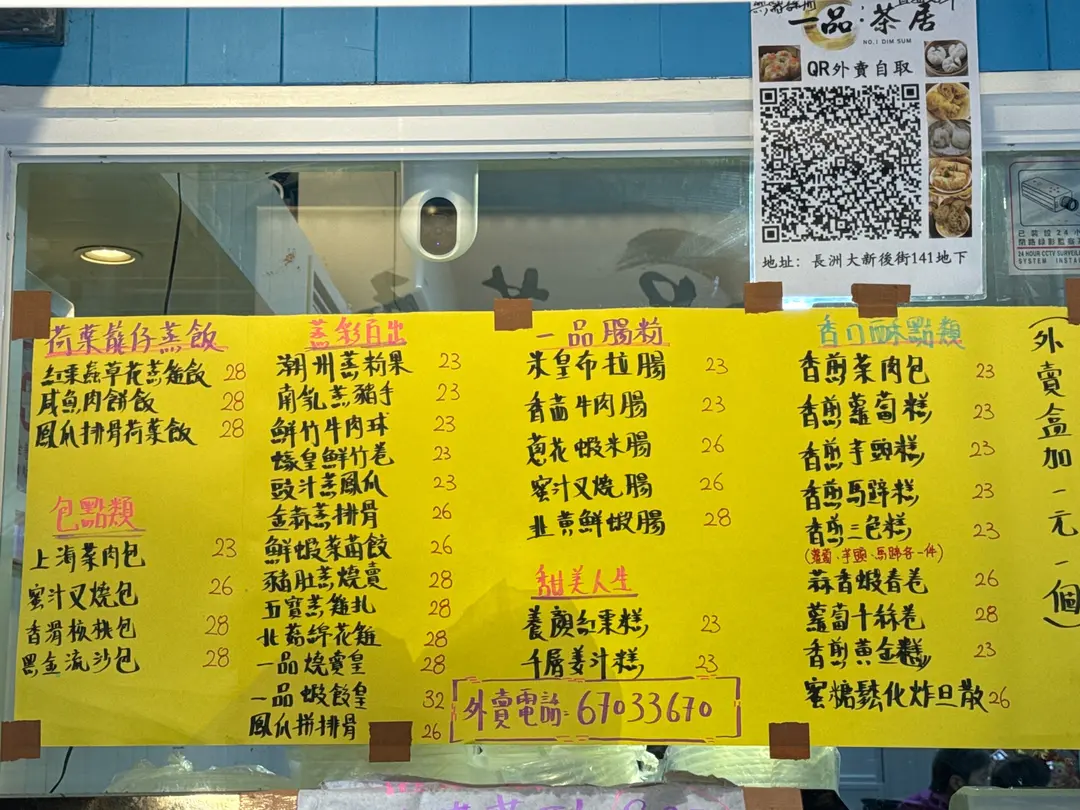 一品·茶居
NO.1 DIM SUM
QR外賣自取
地址: 長洲大新後街141地下
已裝設24小
閉路錄影監察
24 HOUR CCTV SURVEIL
SYSTEM INSTAL
荷葉籠仔蒸飯
紅棗蟲草花蒸雞飯 28
咸魚肉餅飯 28
鳳爪排骨荷葉飯 28
包點類
上海菜肉包 23
蜜汁叉燒包 26
香滑核桃包 28
黑金流沙包 28
蒸彩百出
潮州蒸粉果 23
南乳蒸豬手 23
鮮竹牛肉球 23
蠔皇鮮竹卷 23
豉汁蒸鳳爪 23
金蒜蒸排骨 26
鮮蝦菜苗餃 26
豬肚蒸燒賣 28
五寶蒸雞扎 28
北菇綿花雞 28
一品燒賣皇 28
一品蝦餃皇 32
鳳爪拼排骨 26
一品腸粉
米皇布拉腸 23
香茜牛肉腸 23
蔥花蝦米腸 26
蜜汁叉燒腸 26
韭黄鮮蝦腸 28
甜美人生
養顏紅棗糕 23
千層姜汁糕 23
外賣電話: 67033670
香口酥點類
香煎菜肉包 23
香煎蘿蔔糕 23
香煎芋頭糕 23
香煎馬蹄糕 23
香煎三色糕 23
(蘿蔔、芋頭、馬蹄各一件)
蒜香蝦春卷 26
蘿蔔十絲卷 28
香煎黄金糕 23
蜜糖鬆化炸旦散 26
(外賣盒加一元一個)